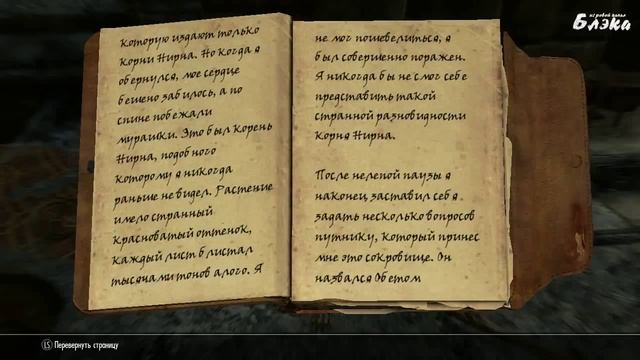 игровой канал
Блэка
которую издают только
корни Нирна. Но когда я
обернулся, мое сердце
бешено забилось, а по
спине побежали
мурашки. Это был корень
Нирна, подобного
которому я никогда
раньше не видел. Растение
имело странный
красноватый оттенок,
каждый лист блистал
тысянами тонов алого. Я
не мог пошевелиться, я
был совершенно поражен.
Я никогда бы не смог себе
представить такой
странной разновидности
корня Нирна.
После нелепой паузы я
наконец заставил себя
задать несколько вопросов
путнику, который принес
мне это сокровище. Он
назвался Обетом
LS Перевернуть страницу